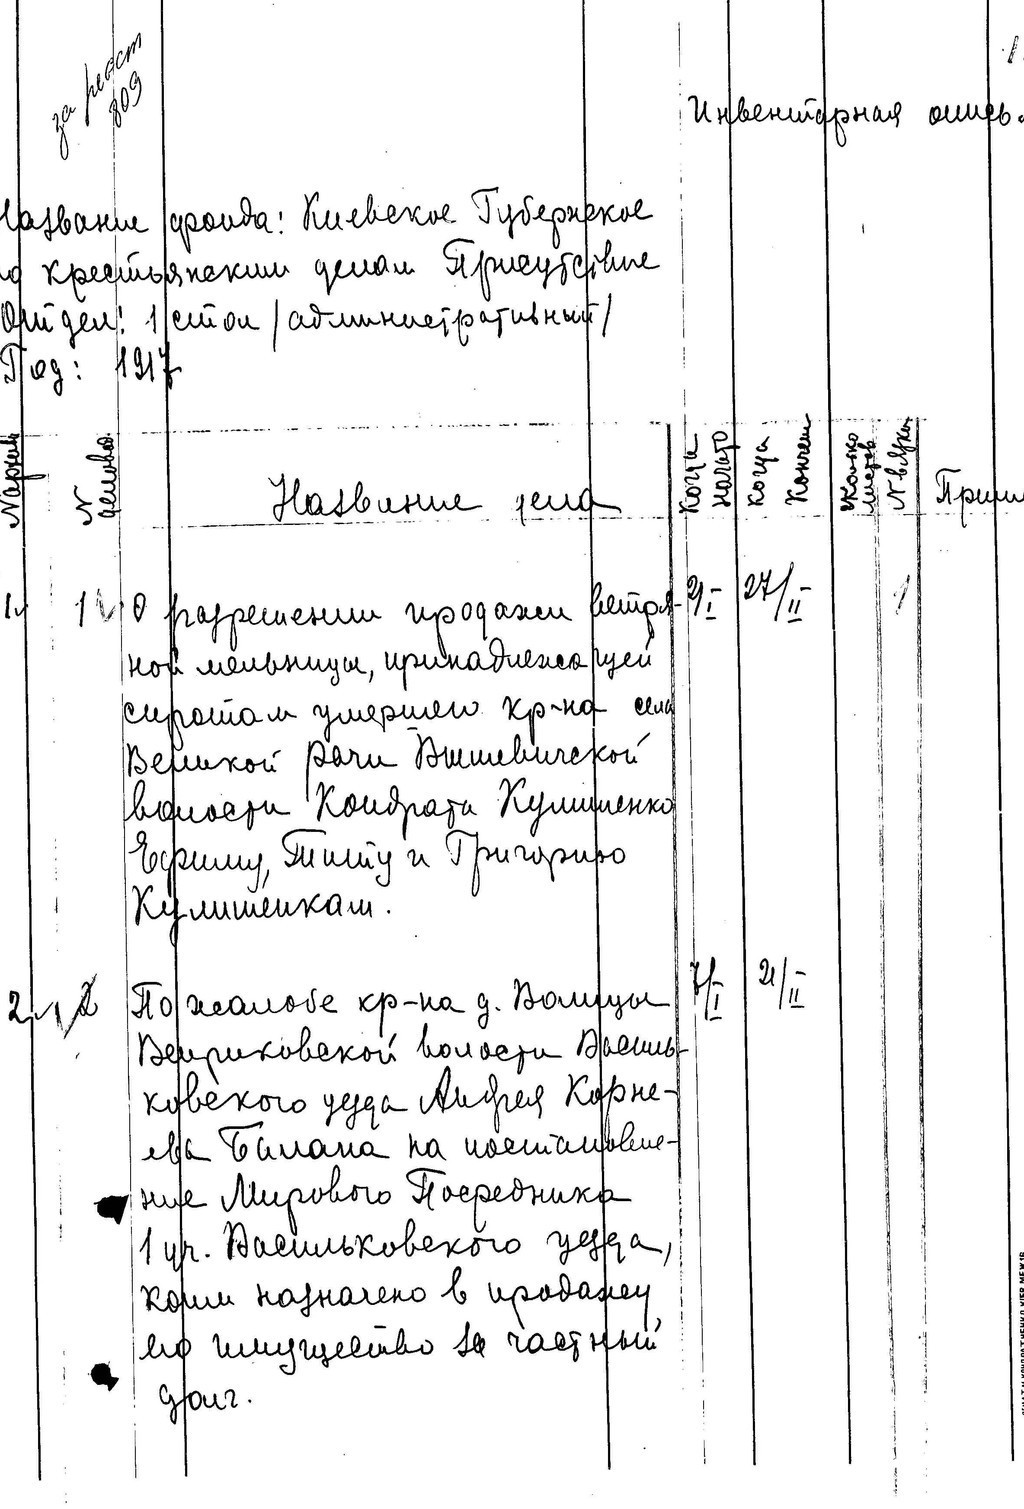 за реест
809
1.
Инвентарная опись.
Название фонда: Киевское Губернское
по крестьянским делам Присутствие
Отдел: 1 стол /административный/
Год: 1917
N архив.
N деловод.
Название дела
Когда начато
Когда кончен
Сколько листов
N вязки
Прим
1. 1 О разрешении продажи ветря- 9/I 27/II 1
ной мельницы, принадлежащей
сиротам умершего кр-на села
Великой Рачи Вышевичской
волости Кондрата Кулишенко
Ефиму, Титу и Григорию
Кулишенкам.
2. 2 По жалобе кр-на д. Волицы 7/I 21/II
Веприковской волости Василь-
ковского уезда Андрея Корне-
ева Билана на постановле-
ние Мирового Посредника
1 уч. Васильковского уезда,
коим назначено в продажу
его имущество за частный
долг.